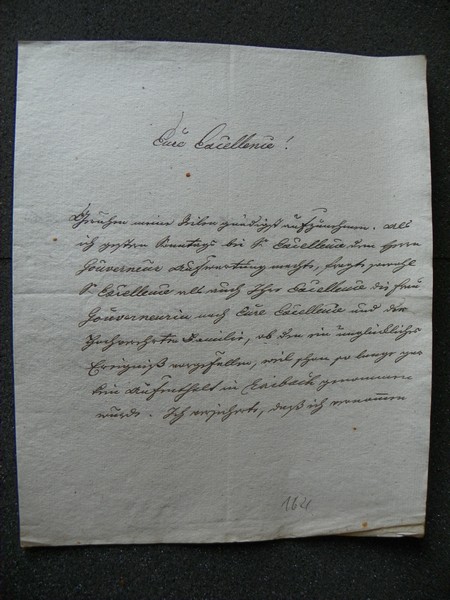 Eure Excellence!
Geruhen meine Zeilen gnädigst aufzunehmen. Als
ich gestern Sonntags bei Sr Excellence dem Herrn
Gouverneur Aufwartung machte, fragte sowohl
Sr Excellence als auch Ihre Excellence die Frau
Gouverneurin nach Eure Excellence und der
Hochverehrten Familie, ob den ein unglückliches
Ereigniß vorgefallen, weil schon so lange gar
kein Aufenthalt in genommen
wurde. Ich versicherte, daß ich vernommen
164